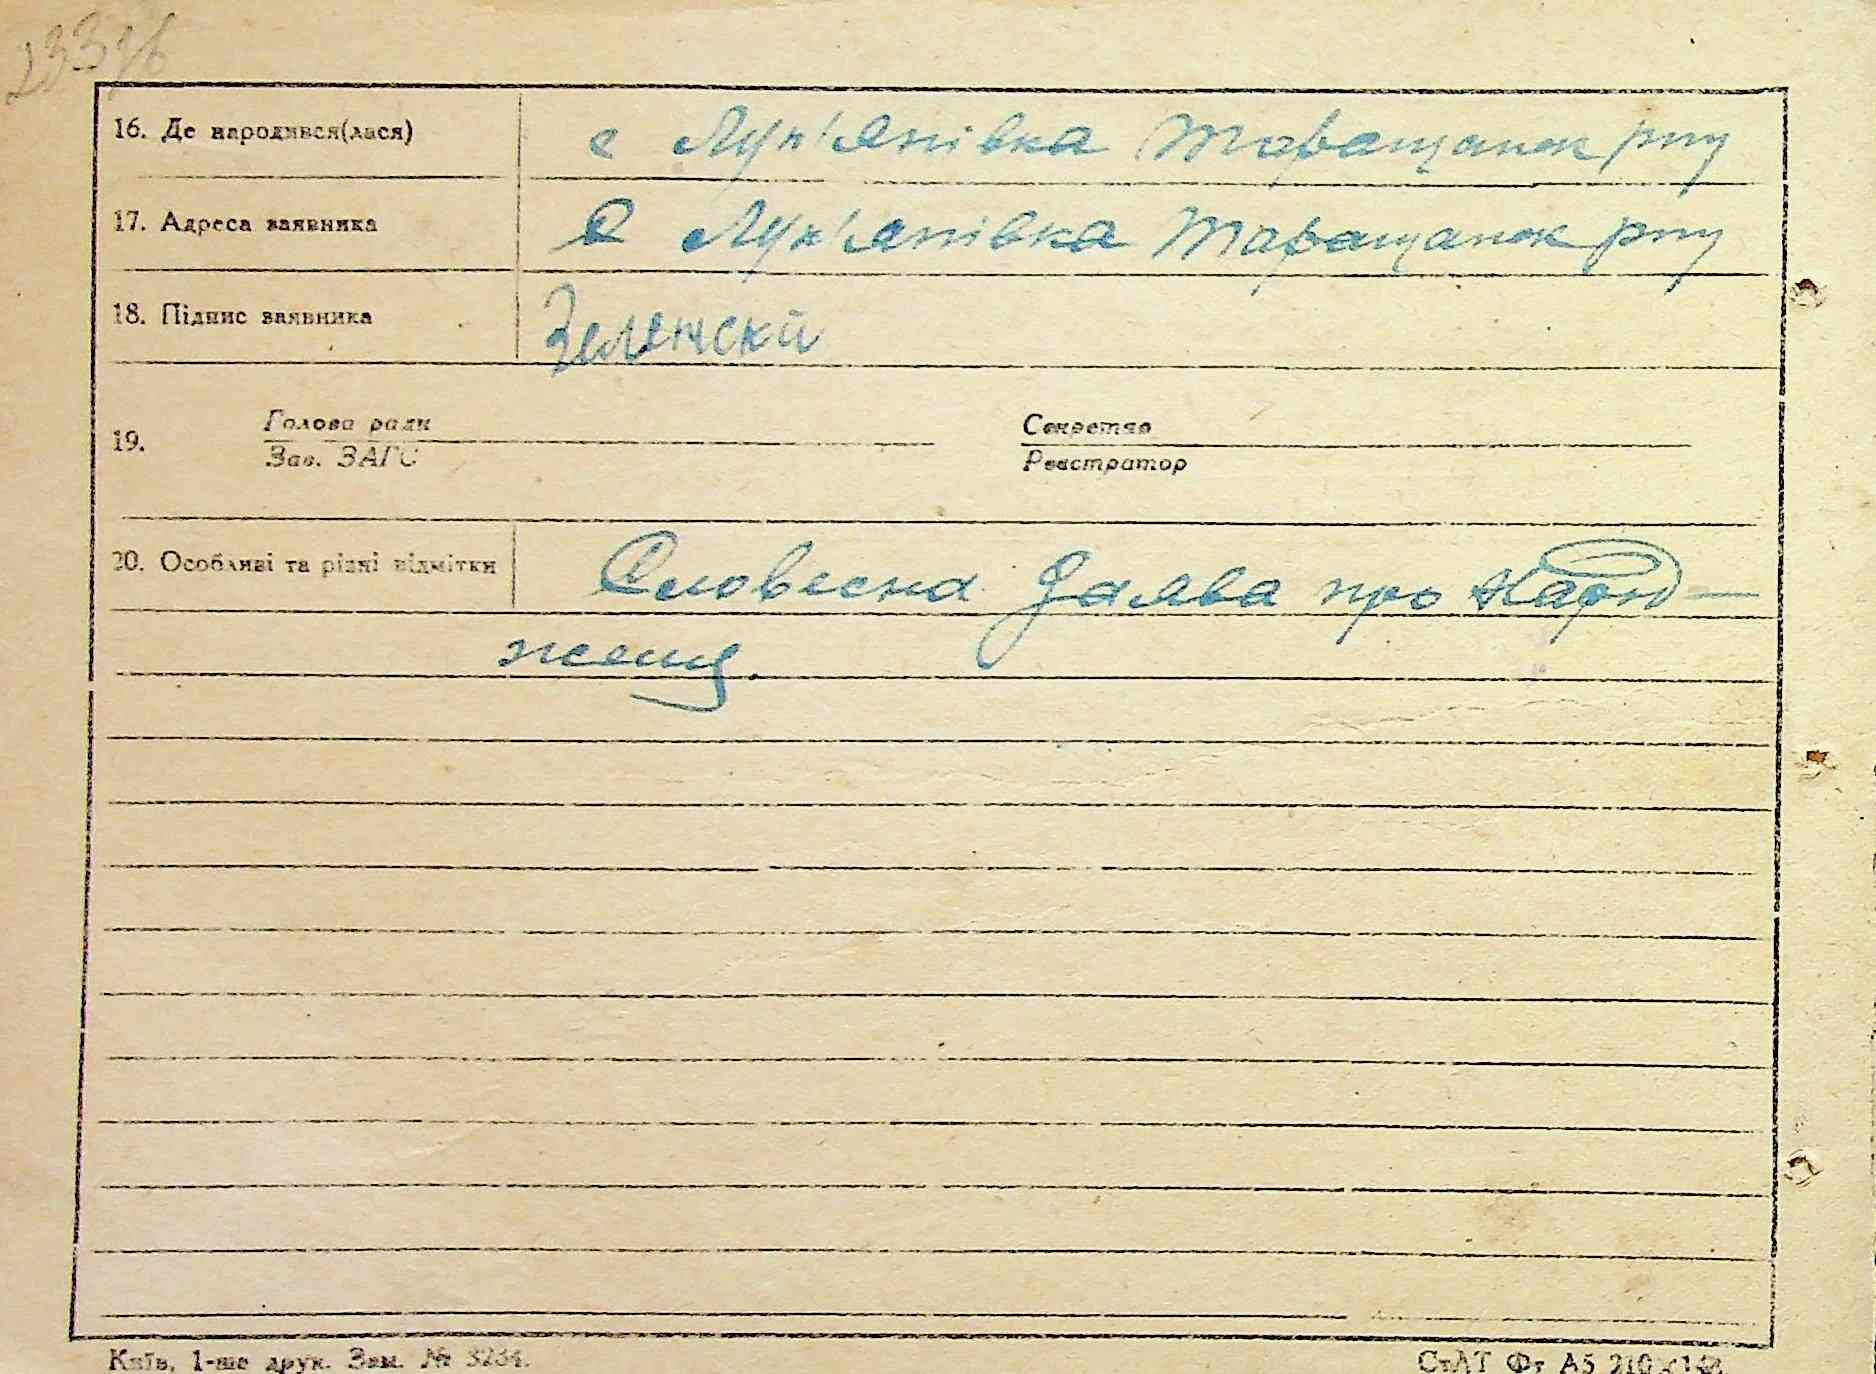 16. Де народився(лася) с Лук'янівка Таращанск рну
17. Адреса заявника С Лук'янівка Таращанск рну
18. Підпис заявника Зеленский
Голова ради Секретар
19.
Зав. ЗАГС Реєстратор
20. Особливі та різні відмітки Словесна Заява про народ-
ження.
Київ, 1-ше друк. Зам. № 3234.
СтАТ Фт А5 210×148